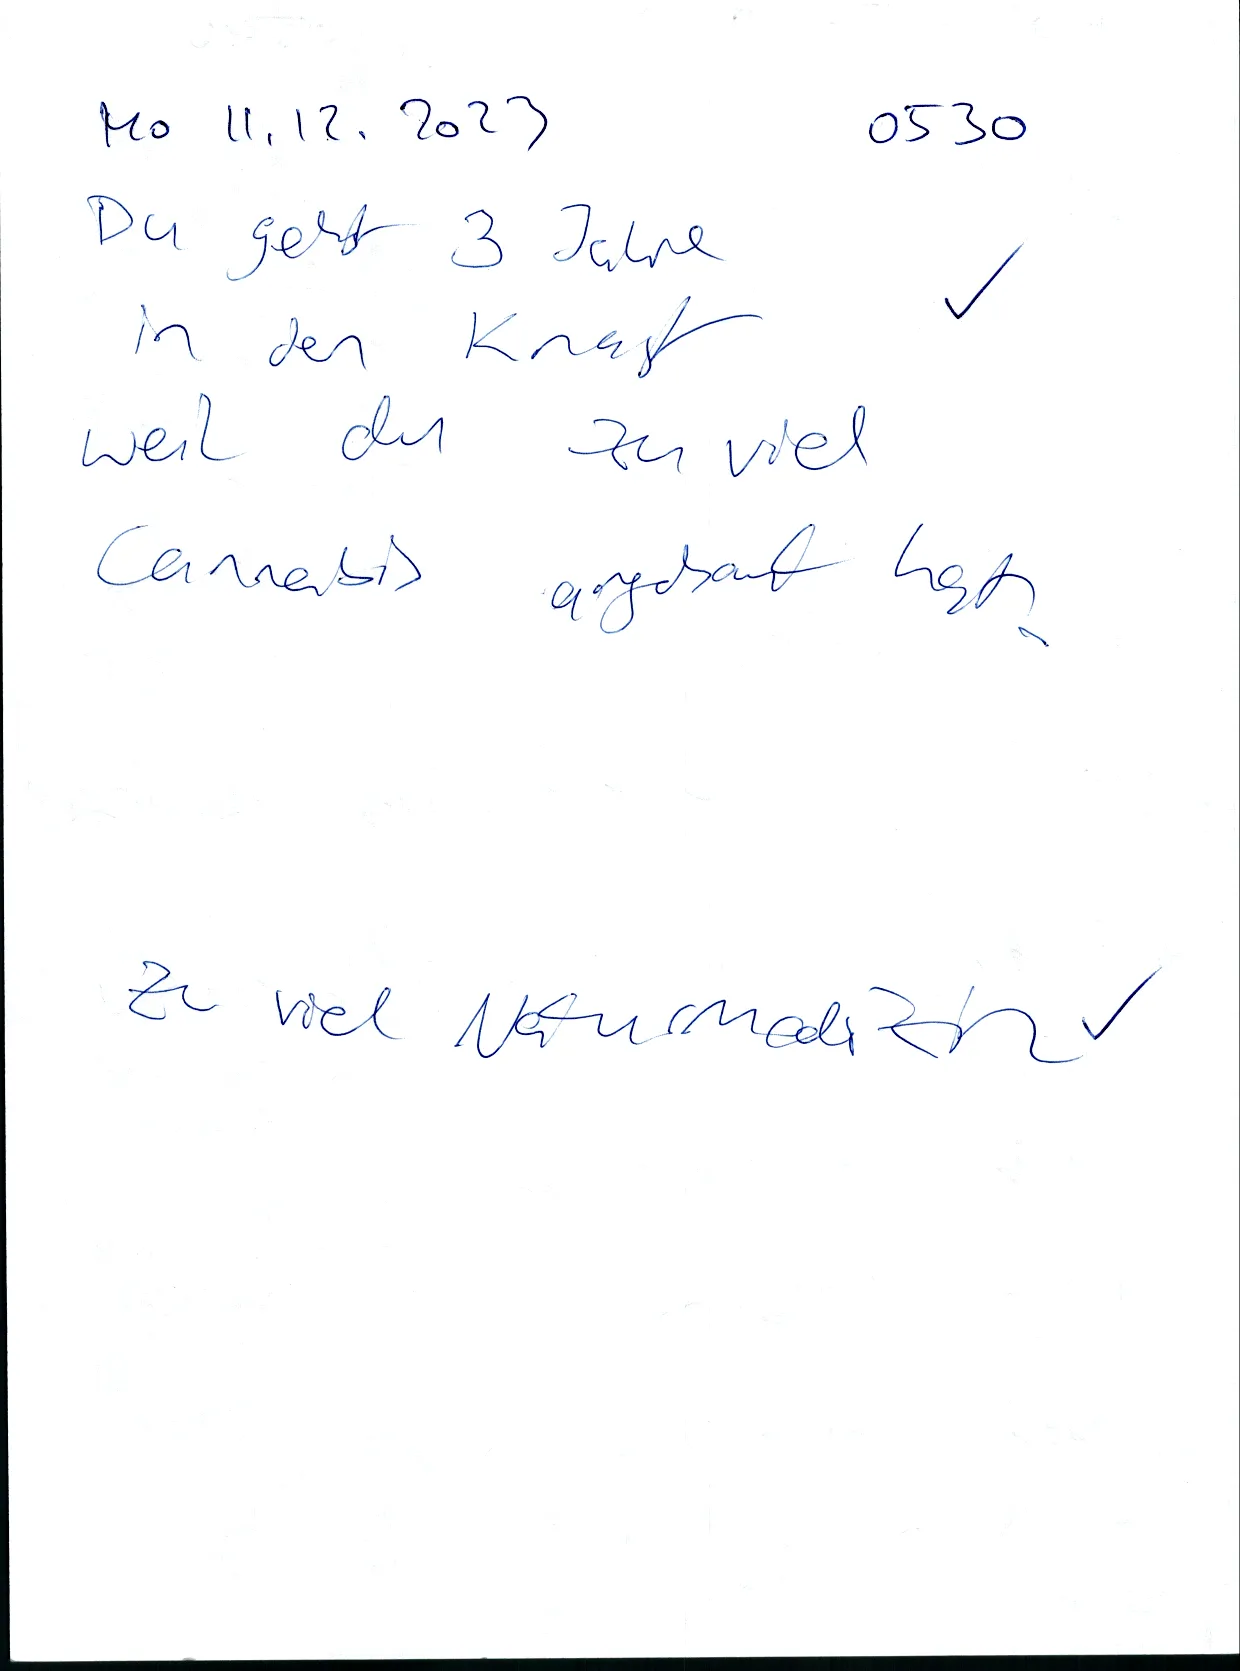 Mo 11.12.2023 0530
Du gehst 3 Jahre
in den Knast ✓
weil du zu viel
Cannabis angebaut hast?
Zu viel Naturmedizin ✓